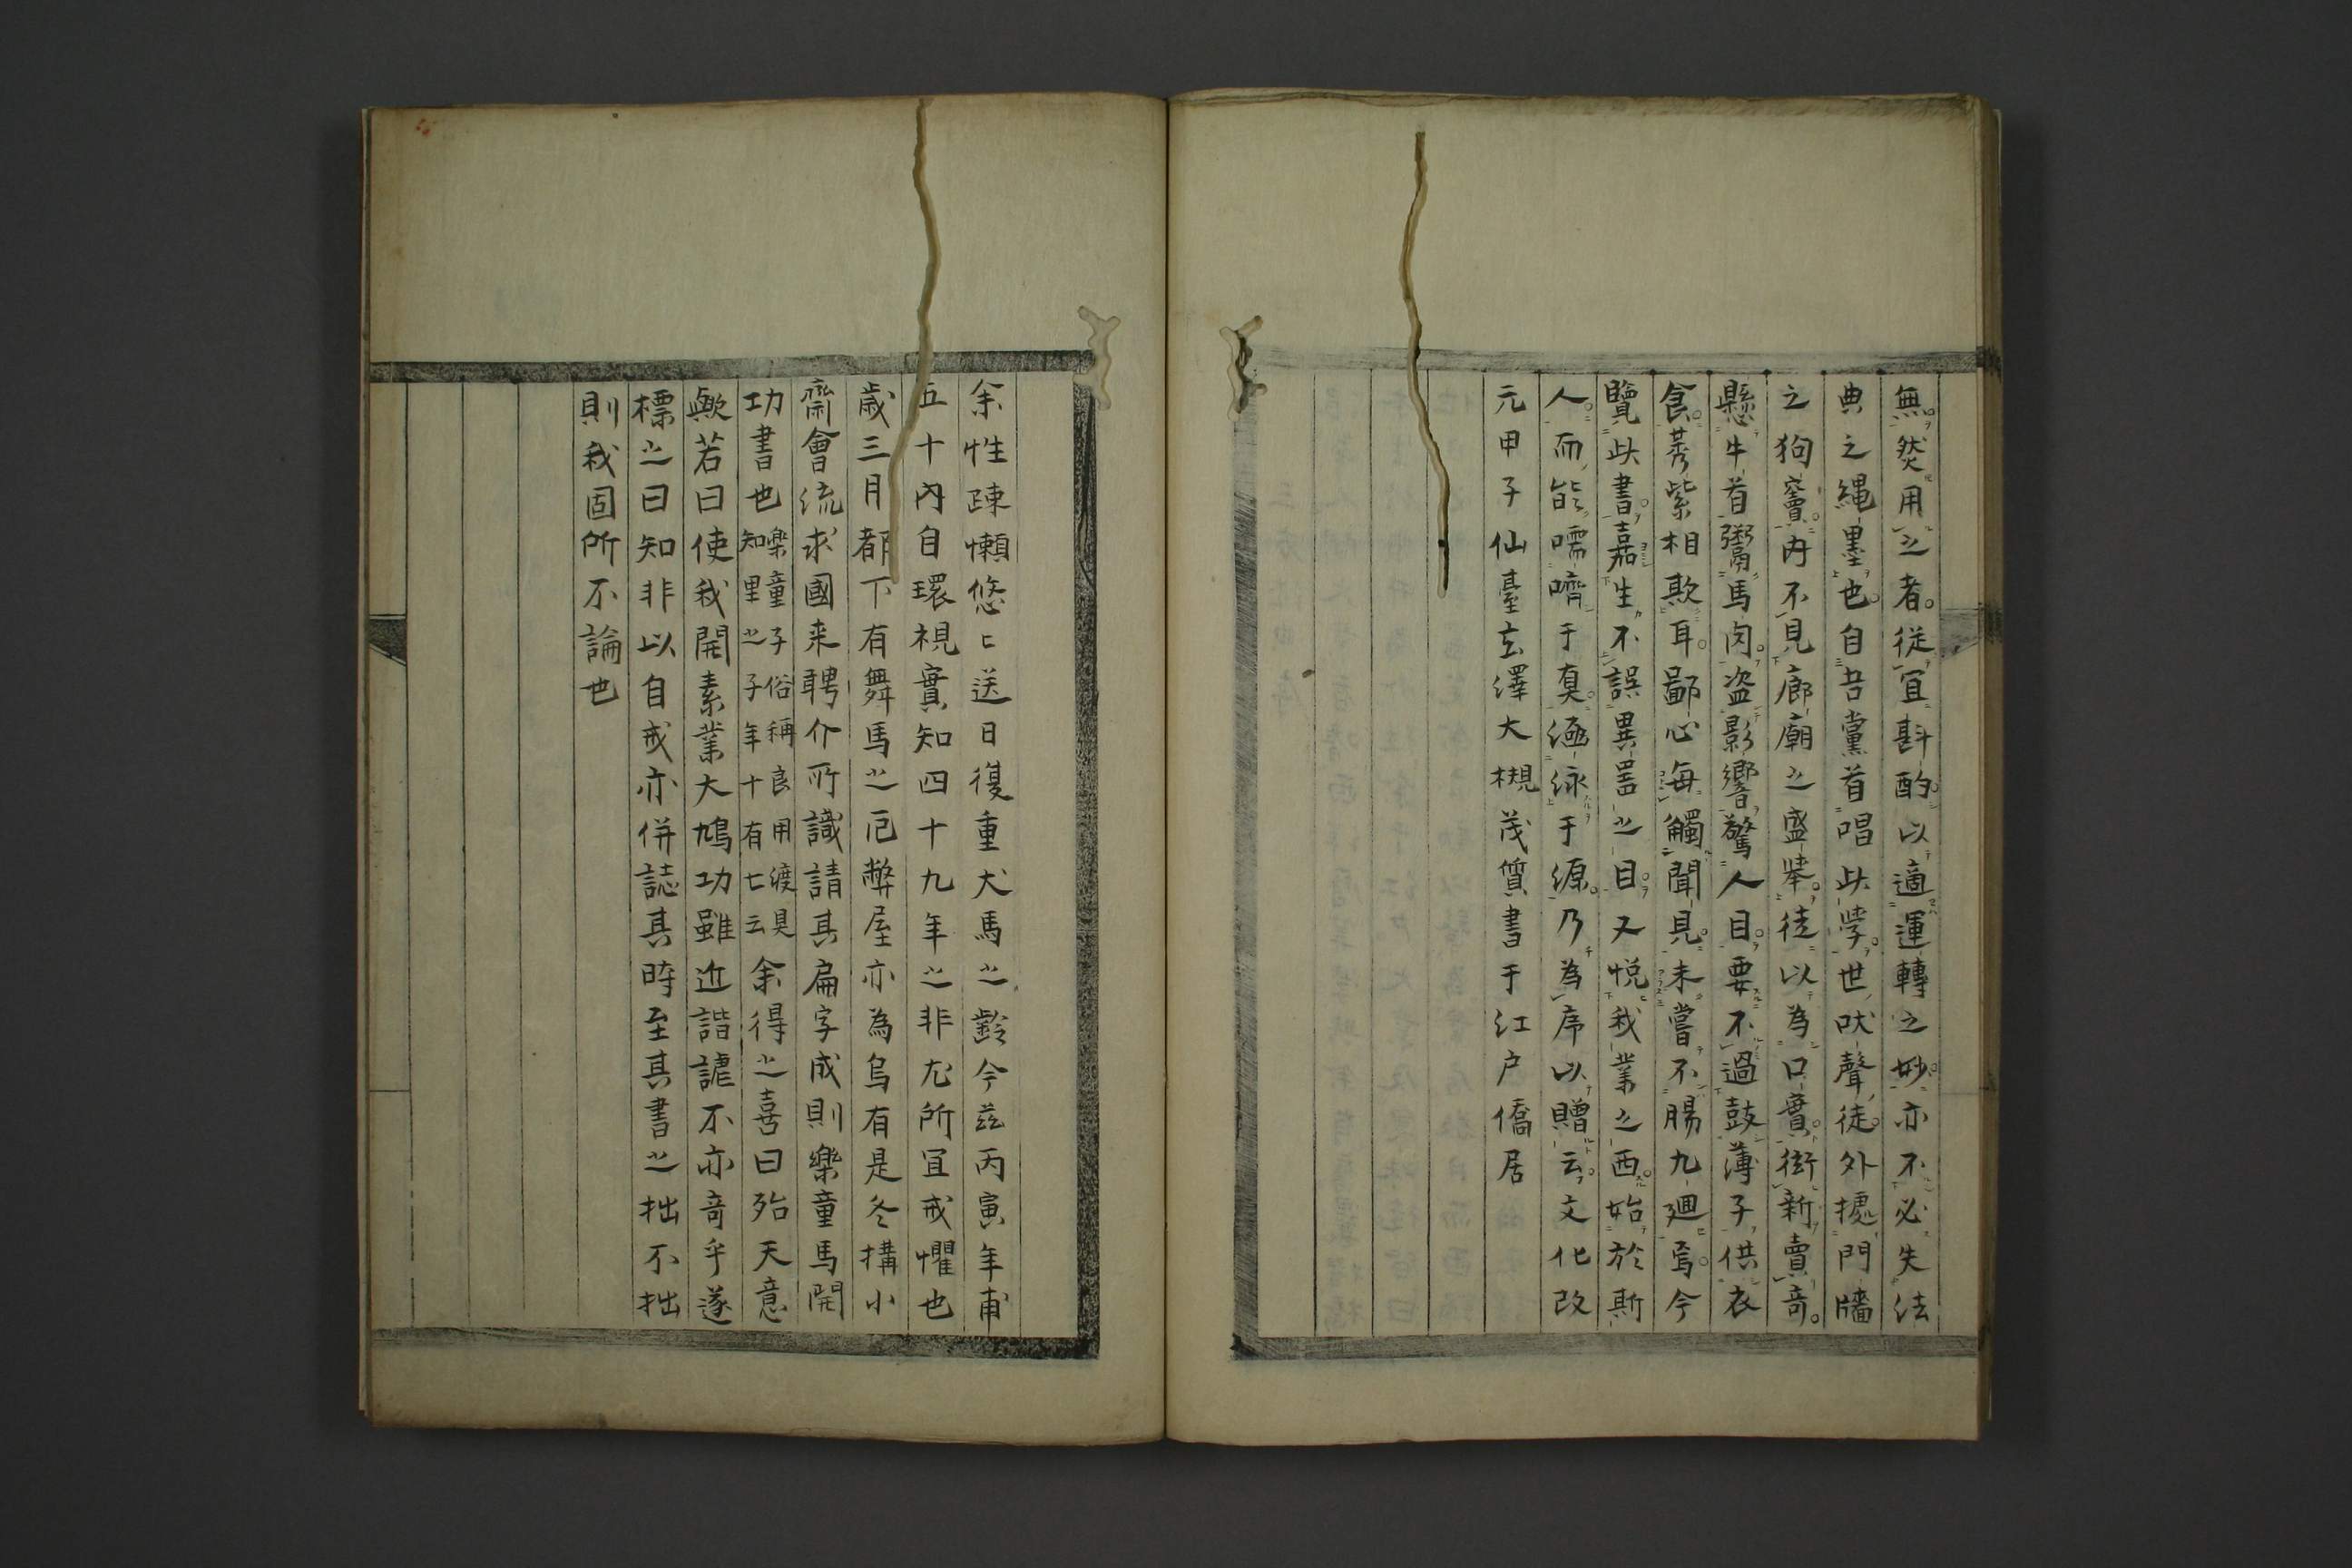 無。然用之者。従宜斟酌以適運轉之妙。亦不必失法
典之縄墨也。自吾黨首唱此学。世吠聲徒。外攄門牆
之狗竇。内不見廊廟之盛挙。徒以為口實。衒新賣奇。
懸牛首鬻馬肉。盗影響驚人目。要不過鼓薄子供衣
食。莠紫相欺耳。鄙心毎觸聞見。未嘗不腸九廻焉。今
覧此書。嘉生不誤異器之目。又悦我業之西。始於斯
人。而能嚅嚌于真。涵泳于源。乃為序以贈云。文化改
元甲子仙臺玄澤大槻茂質書于江戸僑居
余性疎懶悠々送日復重犬馬之齢今茲丙寅年甫
五十内自環視實知四十九年之非尤所宜戒懼也
歳三月都下有舞馬之厄弊屋亦為烏有是冬搆小
齋會流求國来聘介所識請其扁字成則樂童馬開
功書也樂童子俗稱良用渡具知里之子年十有七云余得之喜曰殆天意
歟若曰使我開素業大鳩功雖近諧謔不亦奇乎遂
標之曰知非以自戒亦併誌其時至其書之拙不拙
則我固所不論也